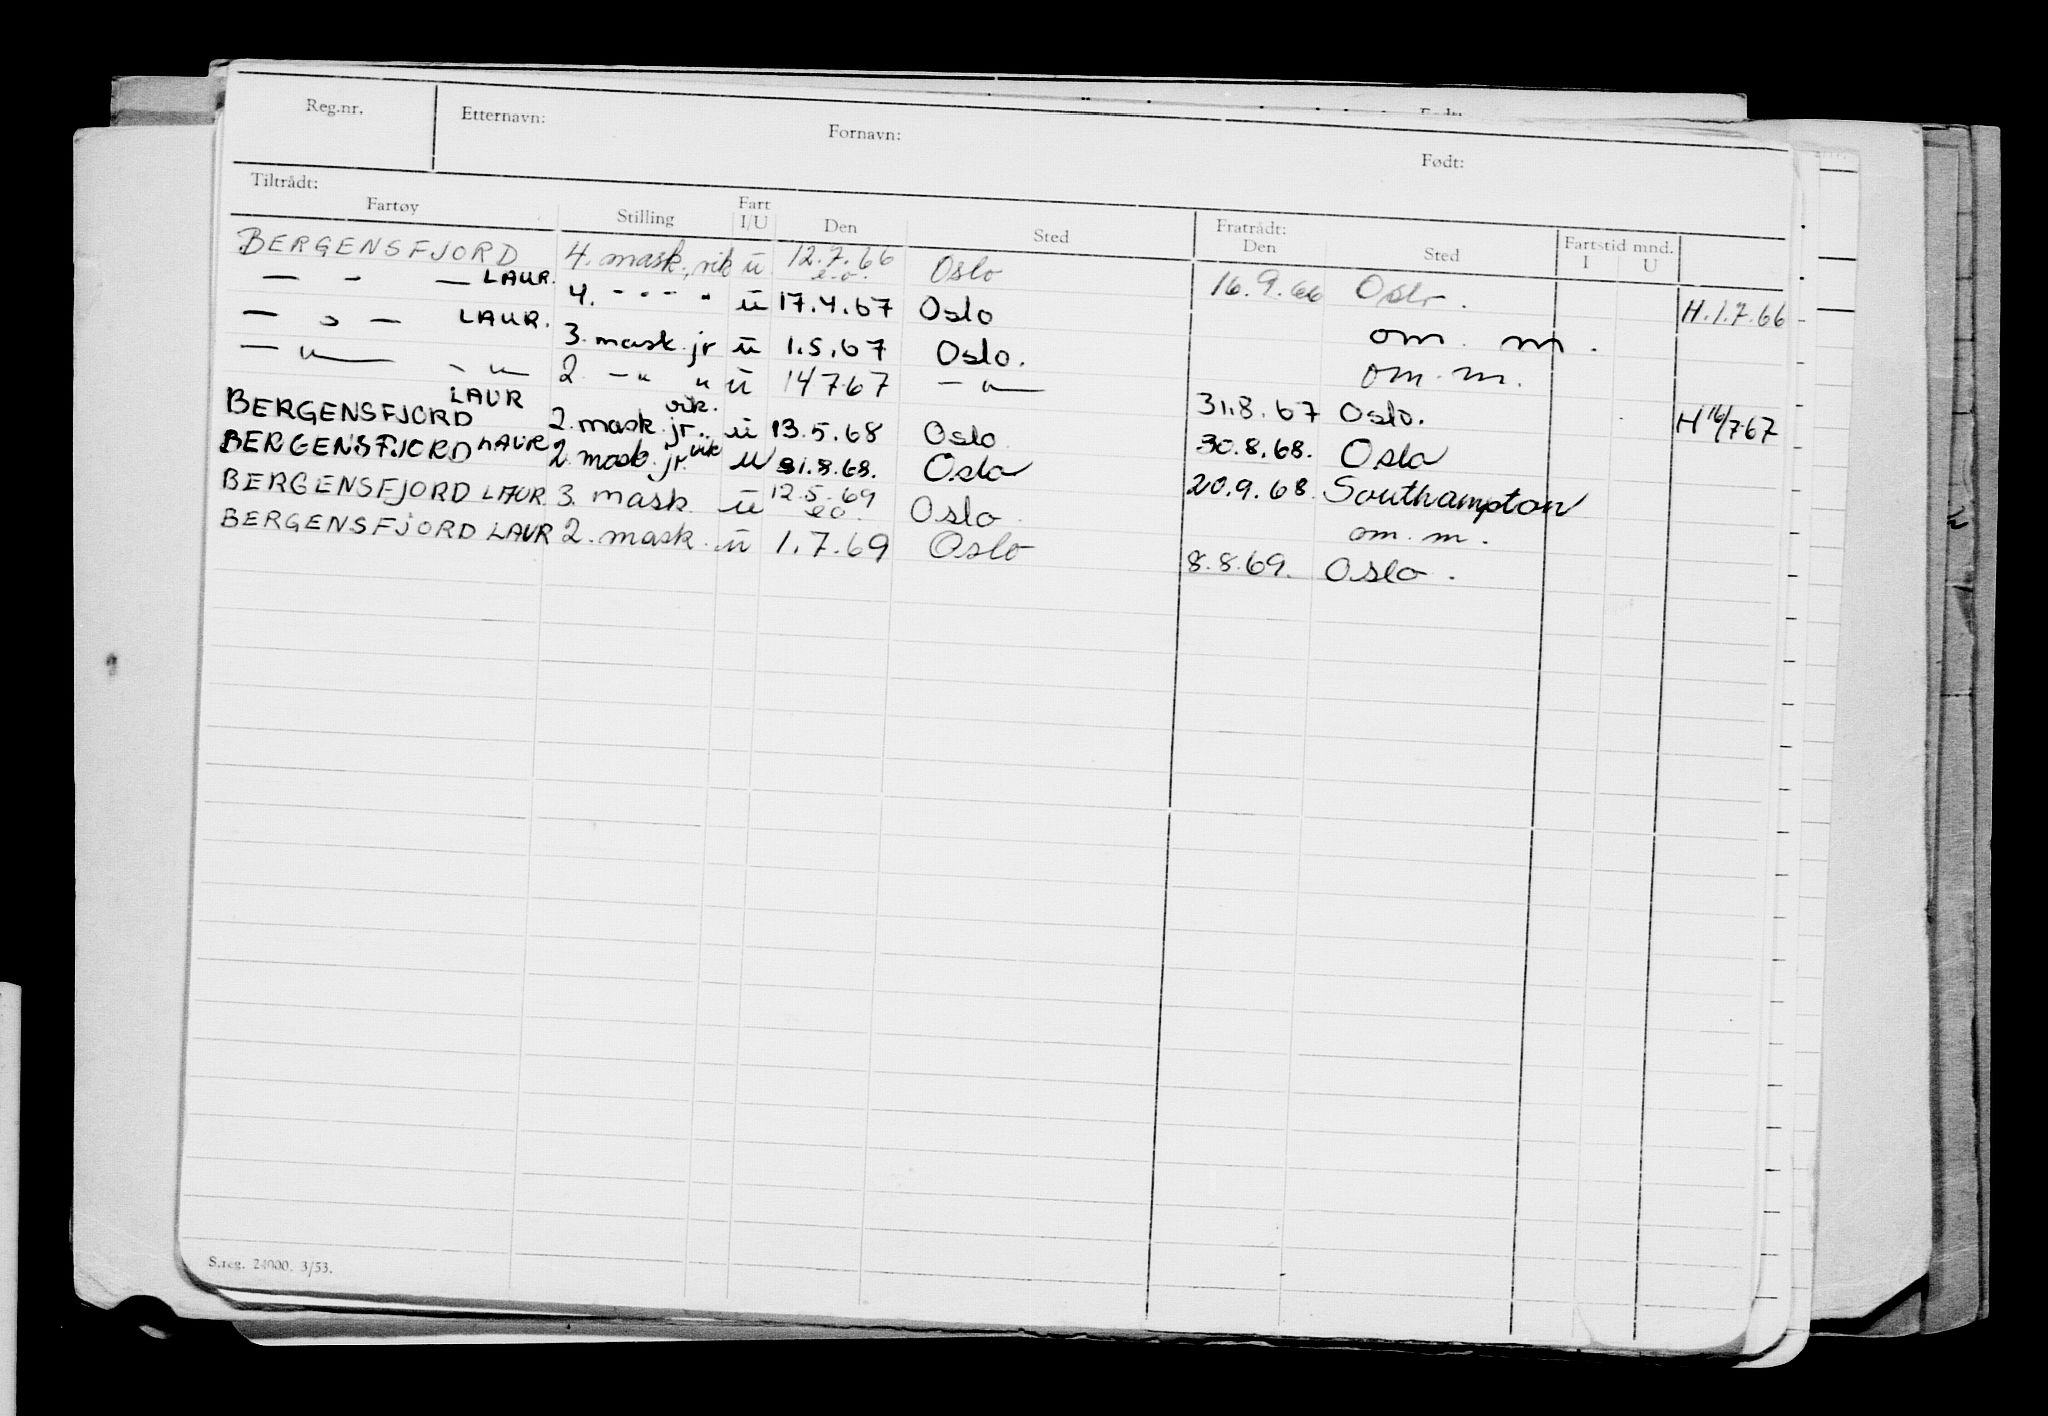 Født:
Reg.nr. Etternavn: Fornavn: Født:
Tiltrådt: Fratrådt:
Fartøy Stilling Fart I/U Den Sted Den Sted Fartstid mnd. I U
BERGENSFJORD 4. mask. vik u 12.7.66 e.o. Oslo 16.9.66 Oslo. H.1.7.66
— - — LAUR. 4. - " - " u 17.4.67 Oslo om. m.
— " — LAUR. 3. mask. jr u 1.5.67 Oslo. om. m.
— " — - " — 2. — " " u 14767 — " — 31.8.67 Oslo. H 16/767
BERGENSFJORD LAUR 2. mask. jr. vik. u 13.5.68 Oslo 30.8.68. Oslo
BERGENSFJORD LAUR 2. mask. jr. vik u 31.8.68. Oslo 20.9.68. Southampton
BERGENSFJORD LAUR 3. mask. u 12.5.69 eo. Oslo om. m.
BERGENSFJORD LAUR 2. mask. u 1.7.69 Oslo 8.8.69. Oslo.
S.reg. 24000. 3/53.